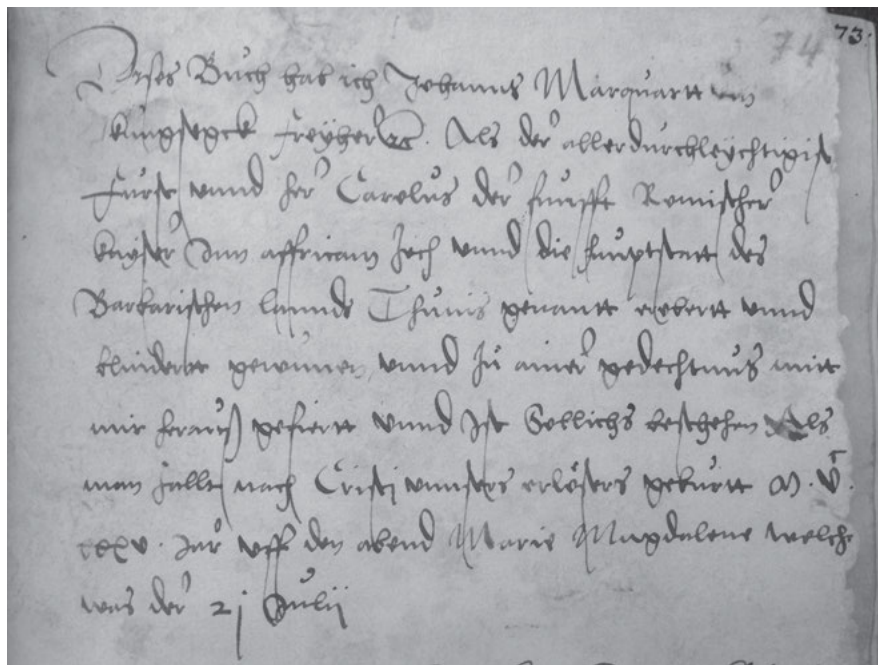 74 73.
Dises Buch hab ich Johanns Marquartt von
küngsegck freÿherr etc. Als der allerdurchleÿchtigist
fürst vnnd her Carolus der funffte Romischer
kayser Inn affricam zoch vnnd die hauptstatt des
Barbarischen lannds Thunis genantt erobert vnnd
blindertt gewunnen vnnd zu ainer gedechtnus mitt
mir herauß gefiertt vnnd Ist Sollichs beschehen Als
man zallt nach Cristi vnnsers erlösers geburtt M. Vc.
xxxv. Jar vff den abend Marie Magdalene welche
was der 21 Julii